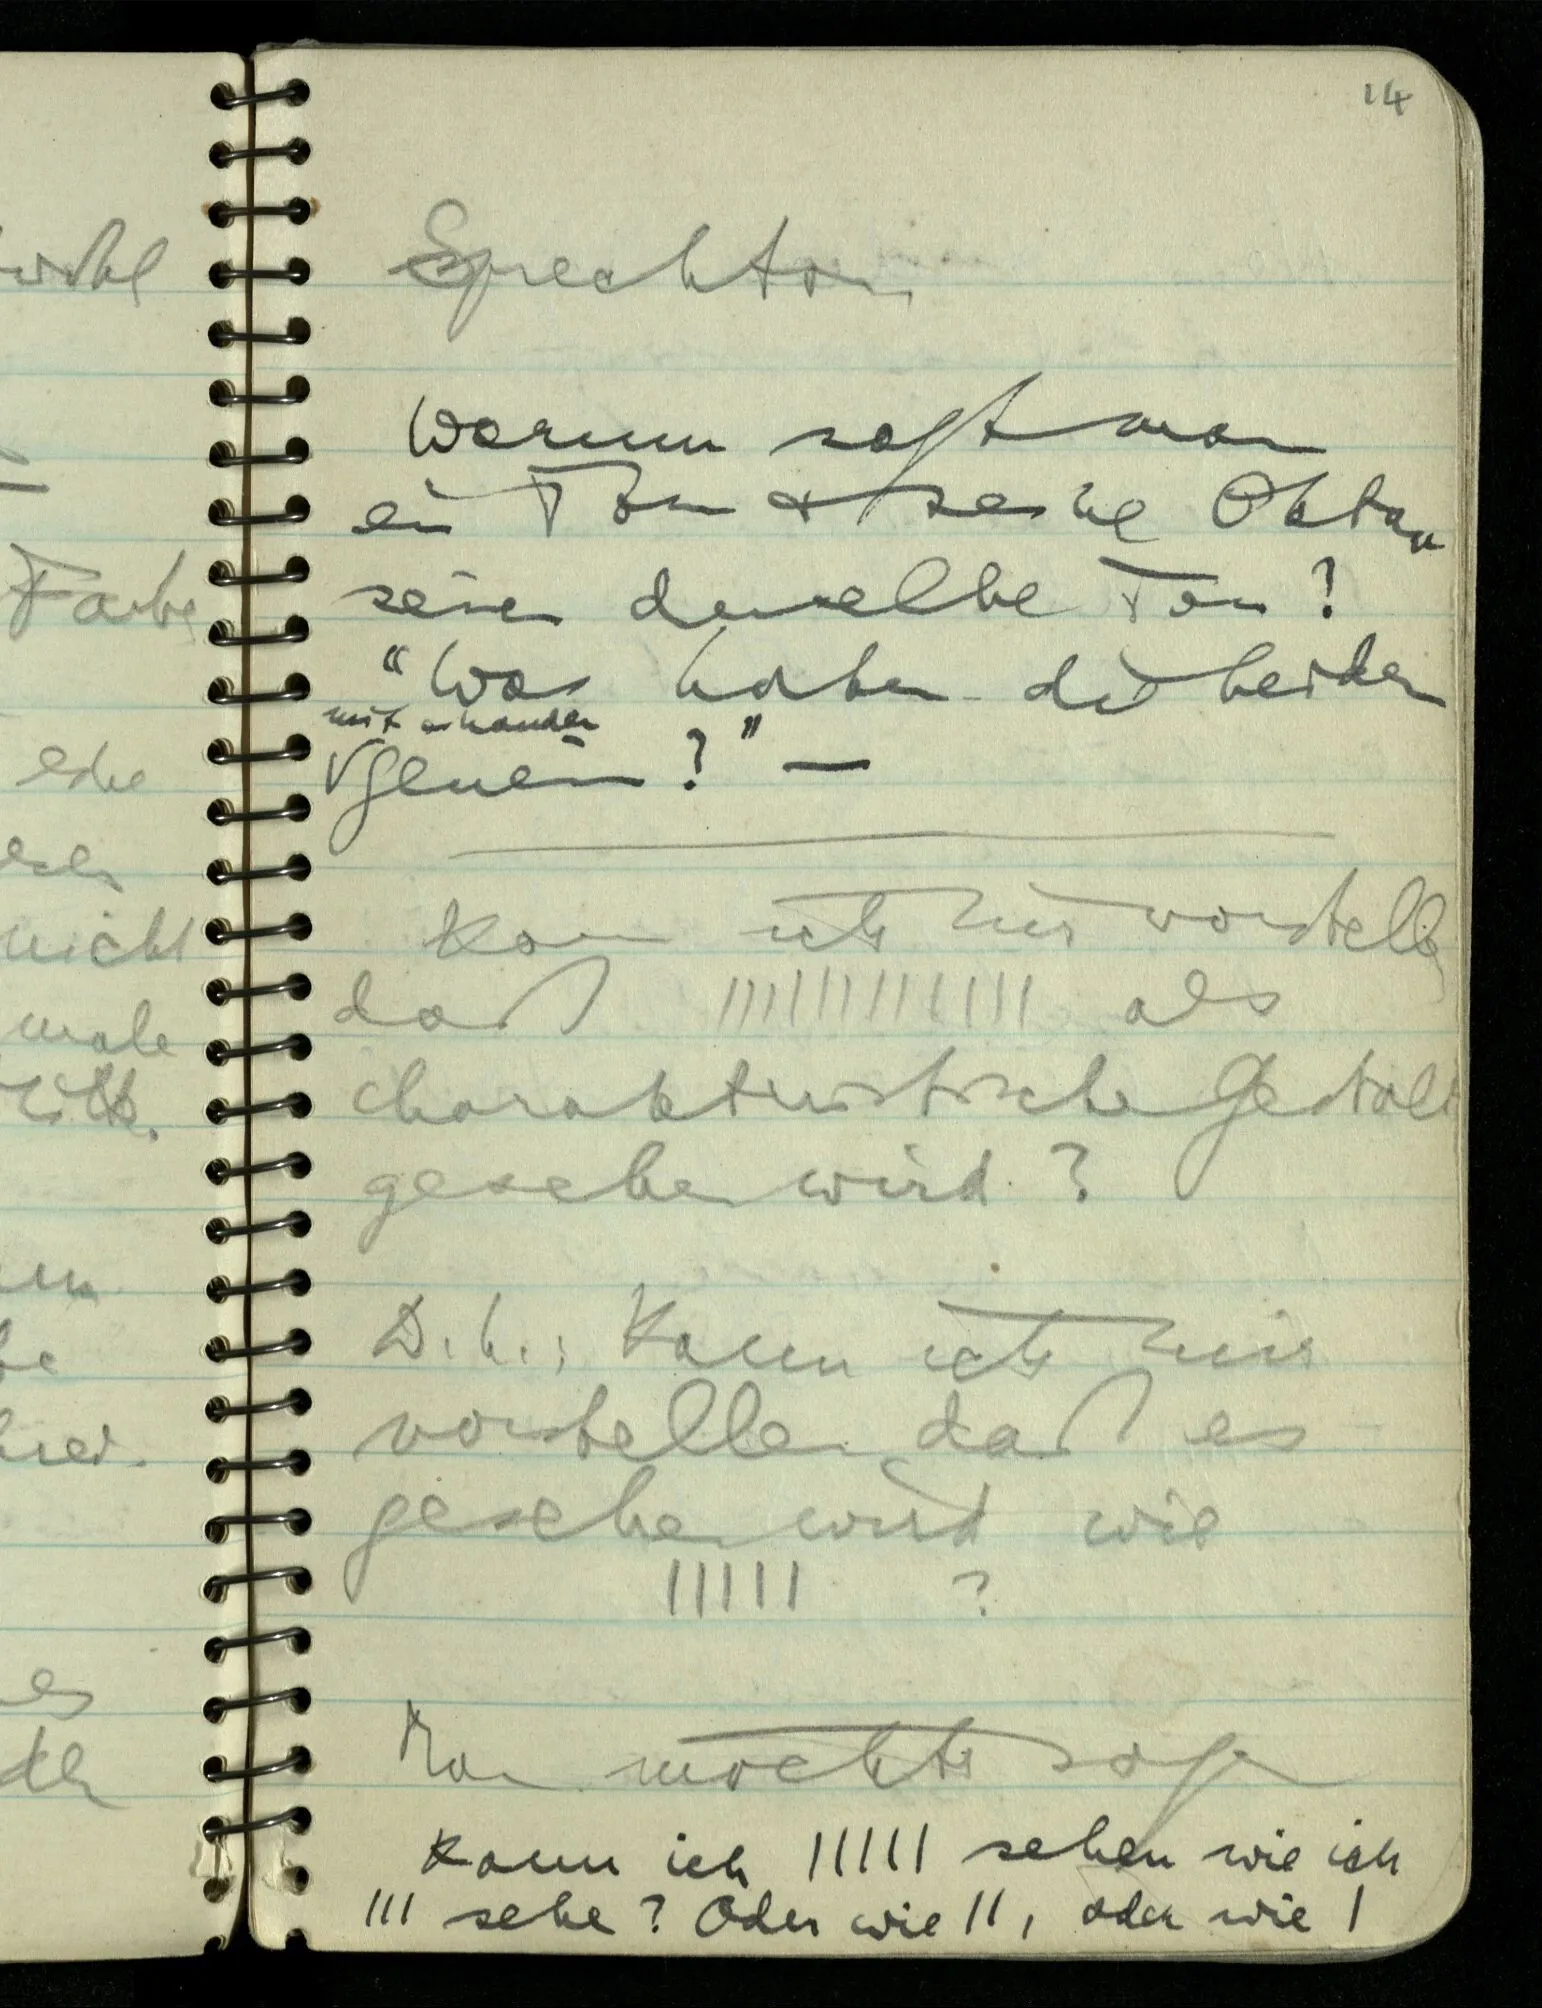 14
Sprechton.
Warum sagt man
ein Ton & seine Oktav
seien derselbe Ton?
"Was haben die beiden
miteinander
gemein?" —
Kann ich mir vorstellen
daß ||||||||||||| als
charakteristische Gestalt
gesehen wird?
D.h.: Kann ich mir
vorstellen daß es
gesehen wird wie
||||| ?
Man möchte sagen
Kann ich ||||| sehen wie ich
||| sehe? Oder wie ||, oder wie |
wohl
Farbe
nicht
male
es